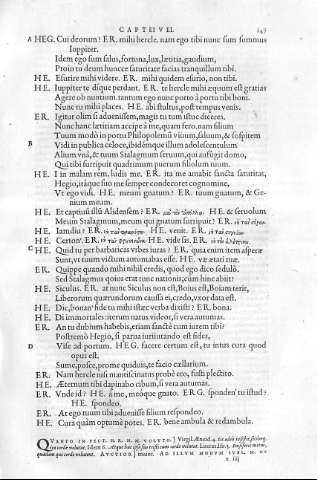 CAPTEIVEI. 143
A HEG. Cui deorum? ER. mihi hercle. nam ego tibi nunc sum summus
Iuppiter.
Idem ego sum salus, fortuna, lux, lætitia, gaudium,
Proin tu deum huncce saturitate facias tranquillum tibi.
HE. Esurire mihi videre. ER. mihi quidem esurio, non tibi.
HE. Iuppiter te dique perdant. ER. te hercle mihi æquum est gratias
Agere ob nuntium. tantum ego nunc porto à portu tibi boni.
Nunc tu mihi places. HE. abi stultus, post tempus venis.
ER. Igitur olim si aduenissem, magis tu tum istoc diceres.
Nunc hanc lætitiam accipe à me, quam fero. nam filium
Tuum modò in portu Philopolemū viuum, saluum, & sospitem
B Vidi in publica celoce, ibidémque illum adolescentulum
Alium vnà, & tuum Stalagmum seruum, qui aufugit domo,
Qui tibi surripuit quadrimum puerum filiolum tuum.
HE. I in malam rem. ludis me. ER. ita me amabit sancta saturitas,
Hegio, itáque suo me semper condecoret cognomine,
Vt ego vidi. HE. meum gnatum? ER. tuum gnatum, & Genium meum.
HE. Et captiuū illū Alidensem? ER. HE. & seruolum
Meum Stalagmum, meum qui gnatum surripuit? ER.
HE. Iamdiu? ER. HE. venit. ER.
HE. Certon'. ER. HE. vide sis. ER.
C HE. Quid tu per barbaricas vrbes iuras? ER. quia enim item asperæ
Sunt, vt tuum victum autumabas esse. HE. væ ætati tuæ.
ER. Quippe quando nihil mihi credis, quod ego dico sedulò.
Sed Stalagmus quoius erat tunc nationis, cùm hinc abiit?
HE. Siculus. ER. at nunc Siculus non est, Boius est, Boiam terit,
Liberorum quærundorum caussa ei, credo, vxor data est.
HE. Dic, bonán' fide tu mihi istæc verba dixisti? ER. bona.
HE. Di immortales iterum natus videor, si vera autumas.
ER. An tu dubium habebis, etiam sanctè cum iurem tibi?
Postremò Hegio, si parua iuriurando est fides,
D Vise ad portum. HEG. facere certum est, tu intus cura quod
opus est,
Sume, posce, prome quiduis, te facio cællarium.
ER. Nam hercle nisi mantiscinatus probè ero, fusti plectito.
HE. Æternum tibi dapinabo cibum, si vera autumas.
ER. Vnde id? HE. à me, meóque gnato. ERG. sponden' tu istud?
HE. spondeo.
ER. At ego tuum tibi aduenisse filium respondeo.
HE. Cura quàm optumè potes. ER. bene ambula & redambula.